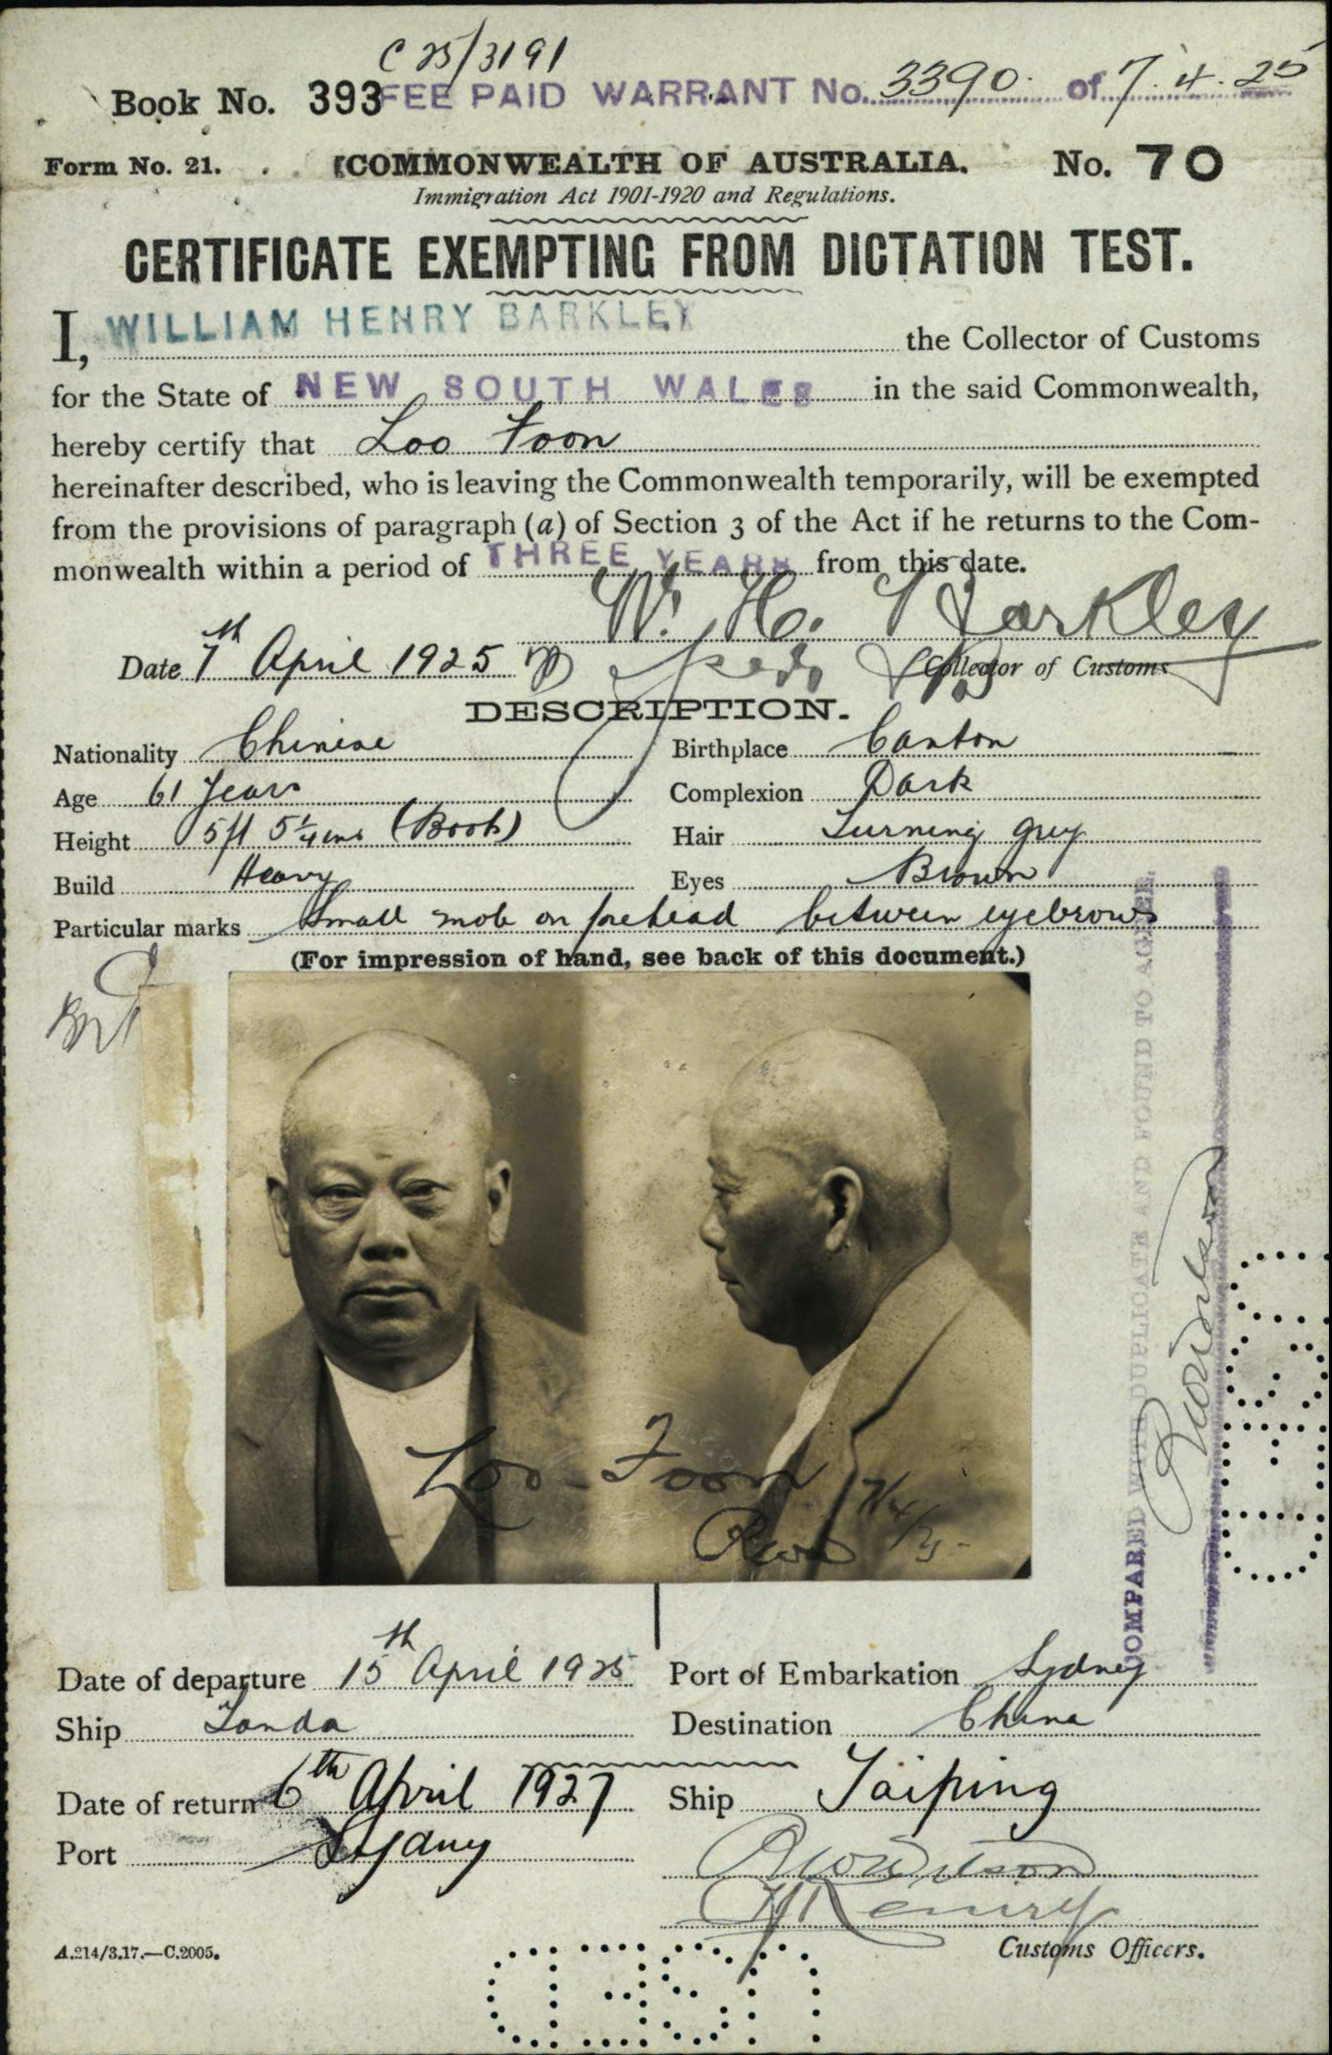 C 25/3191
Book No. 393 FEE PAID WARRANT No. 3390 of 7.4.25
Form No. 21. COMMONWEALTH OF AUSTRALIA. No. 70
Immigration Act 1901-1920 and Regulations.
CERTIFICATE EXEMPTING FROM DICTATION TEST.
I, WILLIAM HENRY BARKLEY the Collector of Customs
for the State of NEW SOUTH WALES in the said Commonwealth,
hereby certify that Loo Foon
hereinafter described, who is leaving the Commonwealth temporarily, will be exempted
from the provisions of paragraph (a) of Section 3 of the Act if he returns to the Com-
monwealth within a period of THREE YEARS from this date.
W. H. Barkley
Date 7th April 1925 Collector of Customs
DESCRIPTION.
Nationality Chinese Birthplace Canton
Age 61 Years Complexion Dark
Height 5ft 5¼ins (Boots) Hair Turning grey
Build Heavy Eyes Brown
Particular marks Small mole on forehead between eyebrows
(For impression of hand, see back of this document.)
COMPARED WITH DUPLICATE AND FOUND TO AGREE.
Loo Foon
7/4/25
Date of departure 15th April 1925 Port of Embarkation Sydney
Ship Tanda Destination China
Date of return 6th April 1927 Ship Taiping
Port Sydney
Customs Officers.
A.214/3.17.—C.2005.